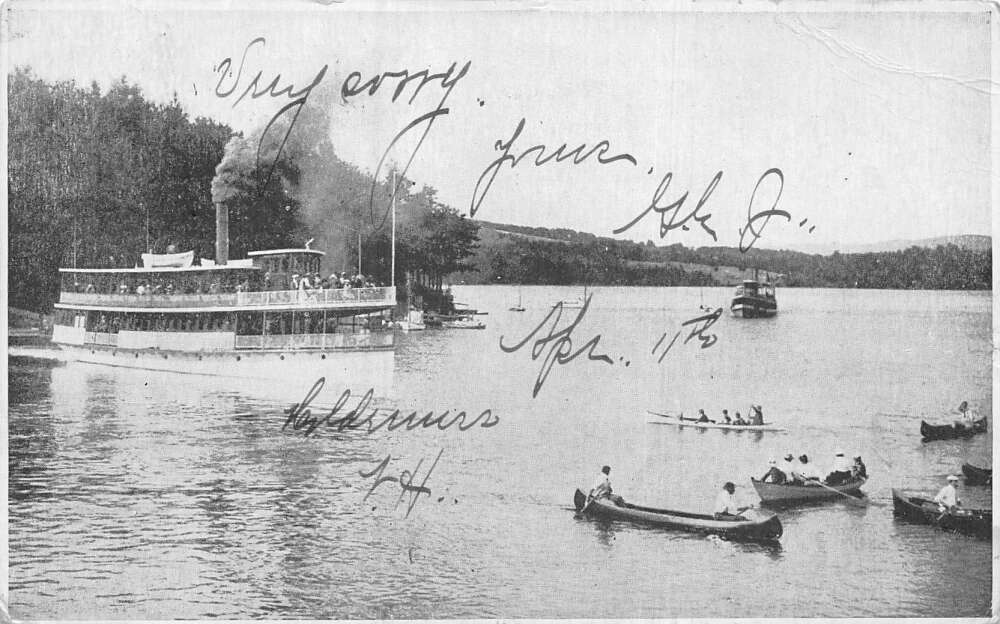 Very sorry.
Yours.
Apr. 11th
Holderness
N.H..